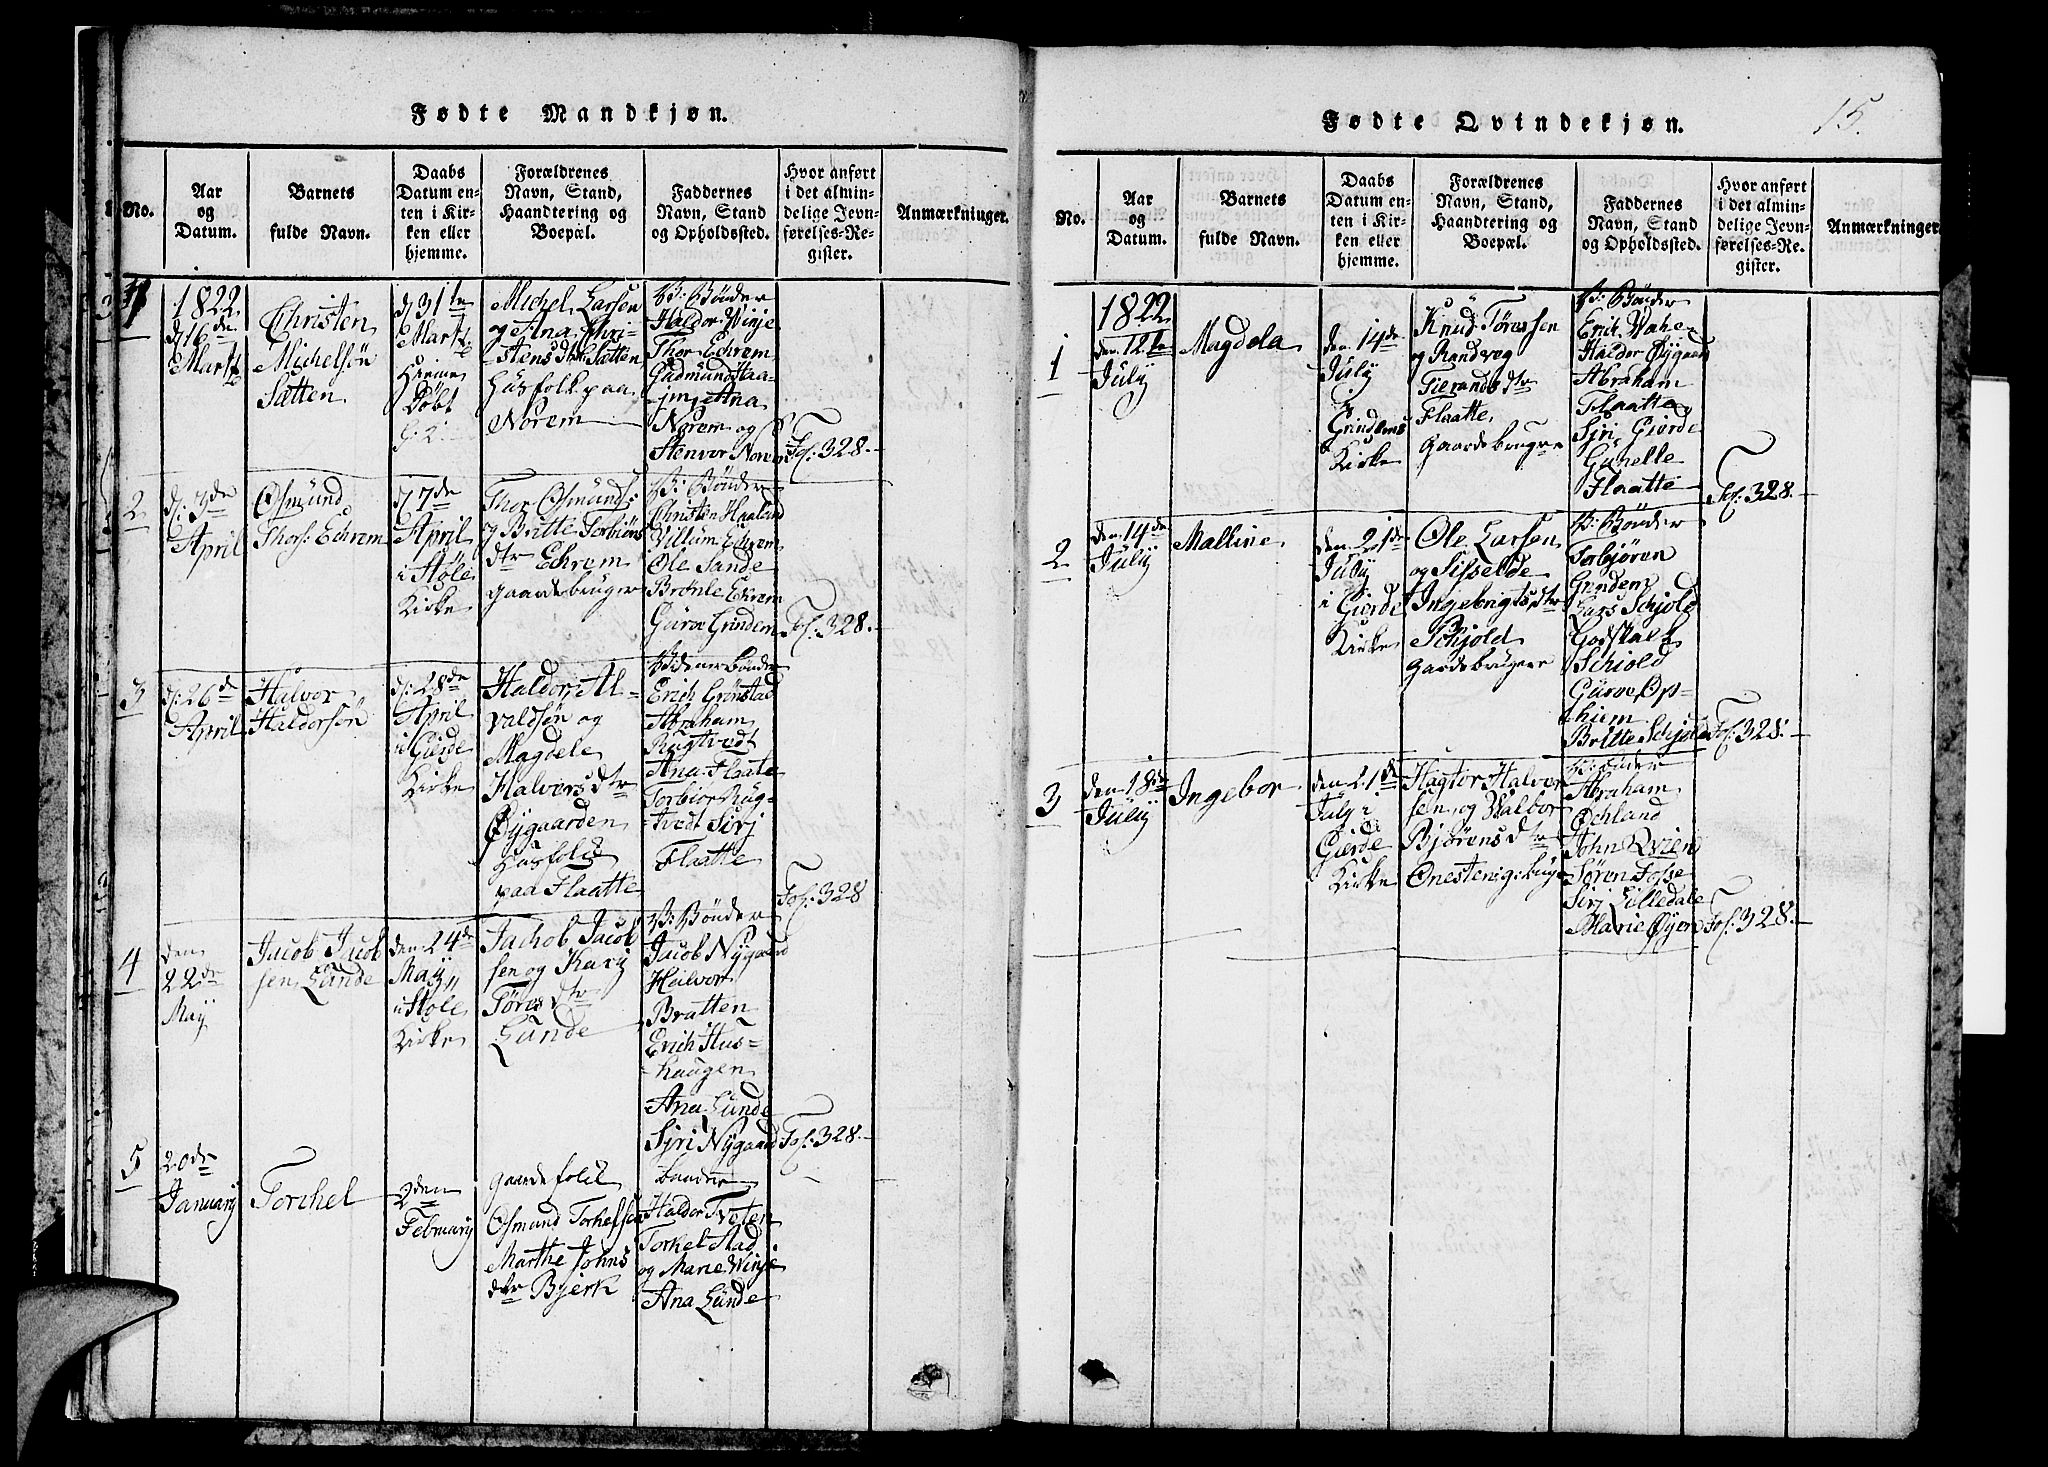 Fødte Mandkjøn.
No.
Aar
og
Datum.
Barnets
fulde Navn.
Daabs
Datum en-
ten i Kir-
ken eller
hjemme.
Forældrenes
Navn, Stand,
Haandtering og
Boepæl.
Faddernes
Navn, Stand
og Opholdssted.
Hvor anført
i det almin-
delige Jevn-
førelses-Re-
gister.
Anmærkninger.
1822
d/16de
Martz
Christen
Michelsön
Sætten
d/31te
Martz
Hieme
Döbt
Michel Larsen
og Ana Chri-
stens dtr Sætten
Husfolk paa
Norem
B: Bönder
Haldor Winje
Thor Echrem
Gudmund Haa-
Ana
Norem og
Stenvor Norem
Fol: 328.
2
d: 3de
April
Osmund
Thors: Echrem
d/7de
April
i Stöle
Kirke
Thor Osmunds:
og Britte Torbiöns
dtr Echrem
gaardsbruger
B: Bönder
Christen Haaland
Villum Echrem
Ole Sande
Brönle Echrem
Gurve Grindem
Fol: 328.
3
d: 26d
April
Halvor
Haldorsön
d: 28de
April
i Gierde
Kirke
Haldor Al-
valdsön og
Magdele
Halvors dtr
Öygaarden
Husfolk
paa Flaatte
Erich Grönstad
Abraham
Rugtvedt
Ana Flaate
Torbior Rug-
tvedt Sirj
Flaatte
Fol: 328
4
den
22de
May
Jacob Jacob
sen Lunde
den 24de
May
i Stole
Kirke
Jachob Jacob
sen og Karj
Töres dtr
Lunde
B: Bönder
Jacob Nygaard
Halvor
Bratten
Erich Hus-
haugen
Ana Lunde
Sjri Nygaard
Fol: 328.
5
20de
January
Torchel
2den
February
gaardsfolk
Osmund Torkelsen
Marthe Johns
dtr Bjerk
bönder
Haldor Tveten
Torkel Stad
og Marie Winje
Ana Lunde
Fødte Qvindekjøn.
15.
No.
Aar
og
Datum.
Barnets
fulde Navn.
Daabs
Datum en-
ten i Kir-
ken eller
hjemme.
Forældrenes
Navn, Stand,
Haandtering og
Boepæl.
Faddernes
Navn, Stand
og Opholdssted.
Hvor anført
i det almin-
delige Jevn-
førelses-Re-
gister.
Anmærkninger.
1
1822
den 12te
July
Magdela
den 14de
July
Grindems
Kirke
Knud Töressen
og Randveg
Tierands dtr
Flaatte
Gaardsbrugere
B: Bönder
Erich Wahe
Haldor Öygaard
Abraham
Flaatte
Sjri Gierde
Gunelle
Flaatte
Fol: 328.
2
den 14de
July
Malline
den 21de
July
i Gierde
Kirke
Ole Larsen
og Sisselde
Ingebrigts dtr
Schjold
Gardsbrugere
B: Bönder
Torbjören
Grindem
Lars Schjold
Godskalk
Schiold
Gurve Op-
hiem
Britte Schjold
Fol: 328.
3
den 18de
July
Ingebor
den 21de
July i
Gierde
Kirke
Hagtor Halver
sen og Walbor
Björens dtr
B: Bönder
Abraham
Öchland
John Qvien
Sören Fosse
Sirj Lölledale
Marie Öyen
Fol: 328.